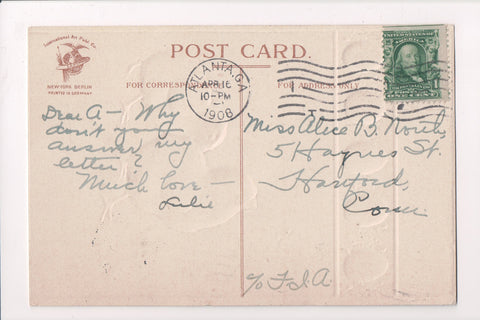 International Art Publ. Co.
NEW-YORK BERLIN
PRINTED IN GERMANY
POST CARD.
FOR CORRESPONDENCE
FOR ADDRESS ONLY.
ATLANTA, GA.
APR 16
10-PM
1908
Dear A— Why
don't you
answer my
letter?
Much love —
Miss Alice B. North,
5 Haynes St.
Hartford,
Conn.
c/o F.I.A.